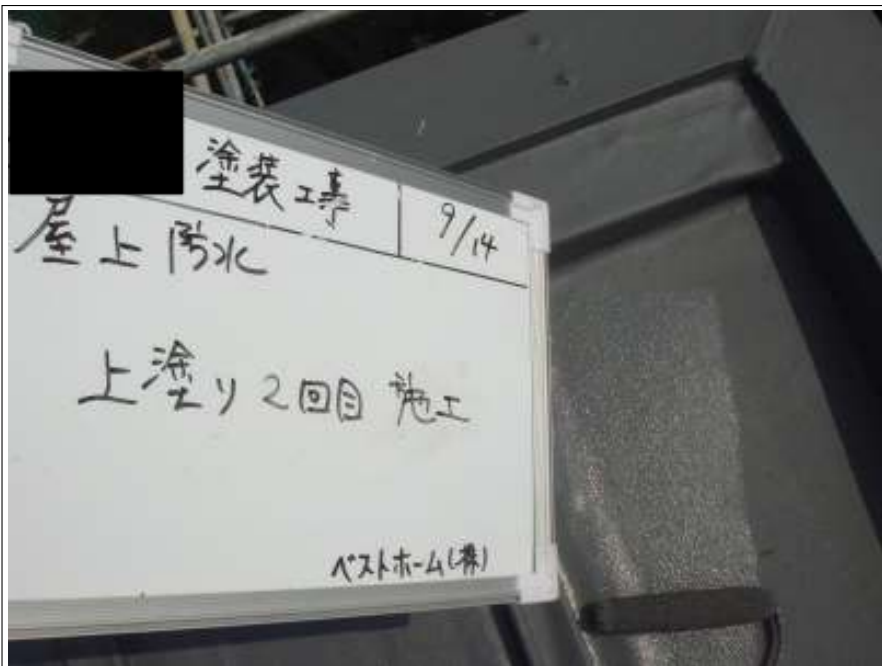 塗装工事 9/14
屋上防水
上塗り2回目 施工
ベストホーム(株)